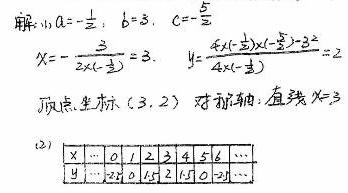 解:(1) a=-\frac{1}{2}, b=3, c=-\frac{5}{2}
x=-\frac{3}{2×(-\frac{1}{2})}=3. y=\frac{4×(-\frac{1}{2})×(-\frac{5}{2})-3^2}{4×(-\frac{1}{2})}=2
顶点坐标(3,2) 对称轴:直线x=3
(2)
x … 0 1 2 3 4 5 6 …
y … -2.5 0 1.5 2 1.5 0 -2.5 …